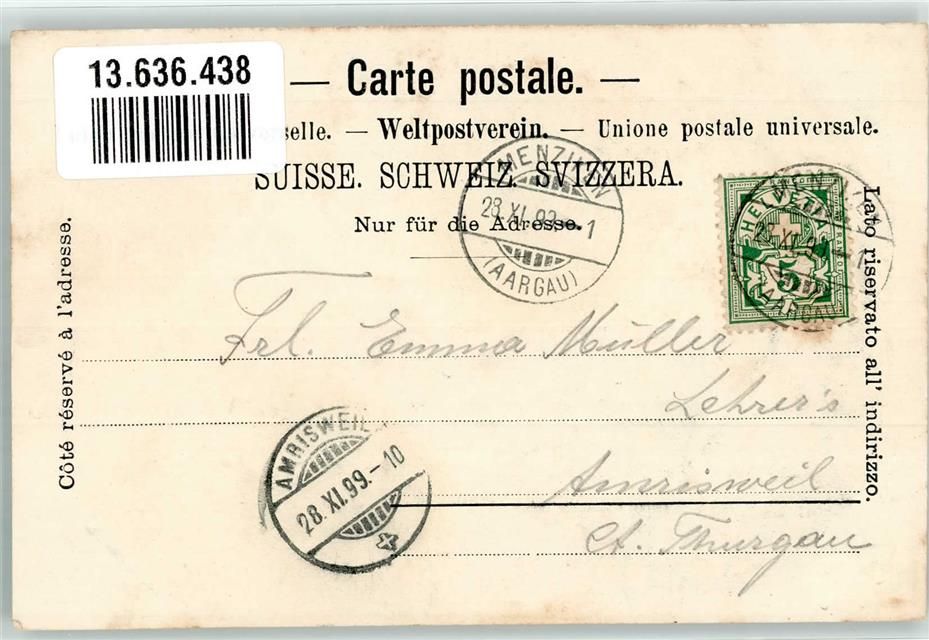 13.636.438
— Carte postale. —
selle. — Weltpostverein. — Unione postale universale.
SUISSE. SCHWEIZ. SVIZZERA.
Nur für die Adresse.
Côté réservé à l'adresse.
Lato riservato all' indirizzo.
MENZIKEN
28.XI.99.-1
(AARGAU)
HELVETIA
5
28.XI.99.-1
(AARGAU)
Frl. Emma Müller
Lehrer's
Amrisweil
Ct. Thurgau
AMRISWEIL
28.XI.99.-10